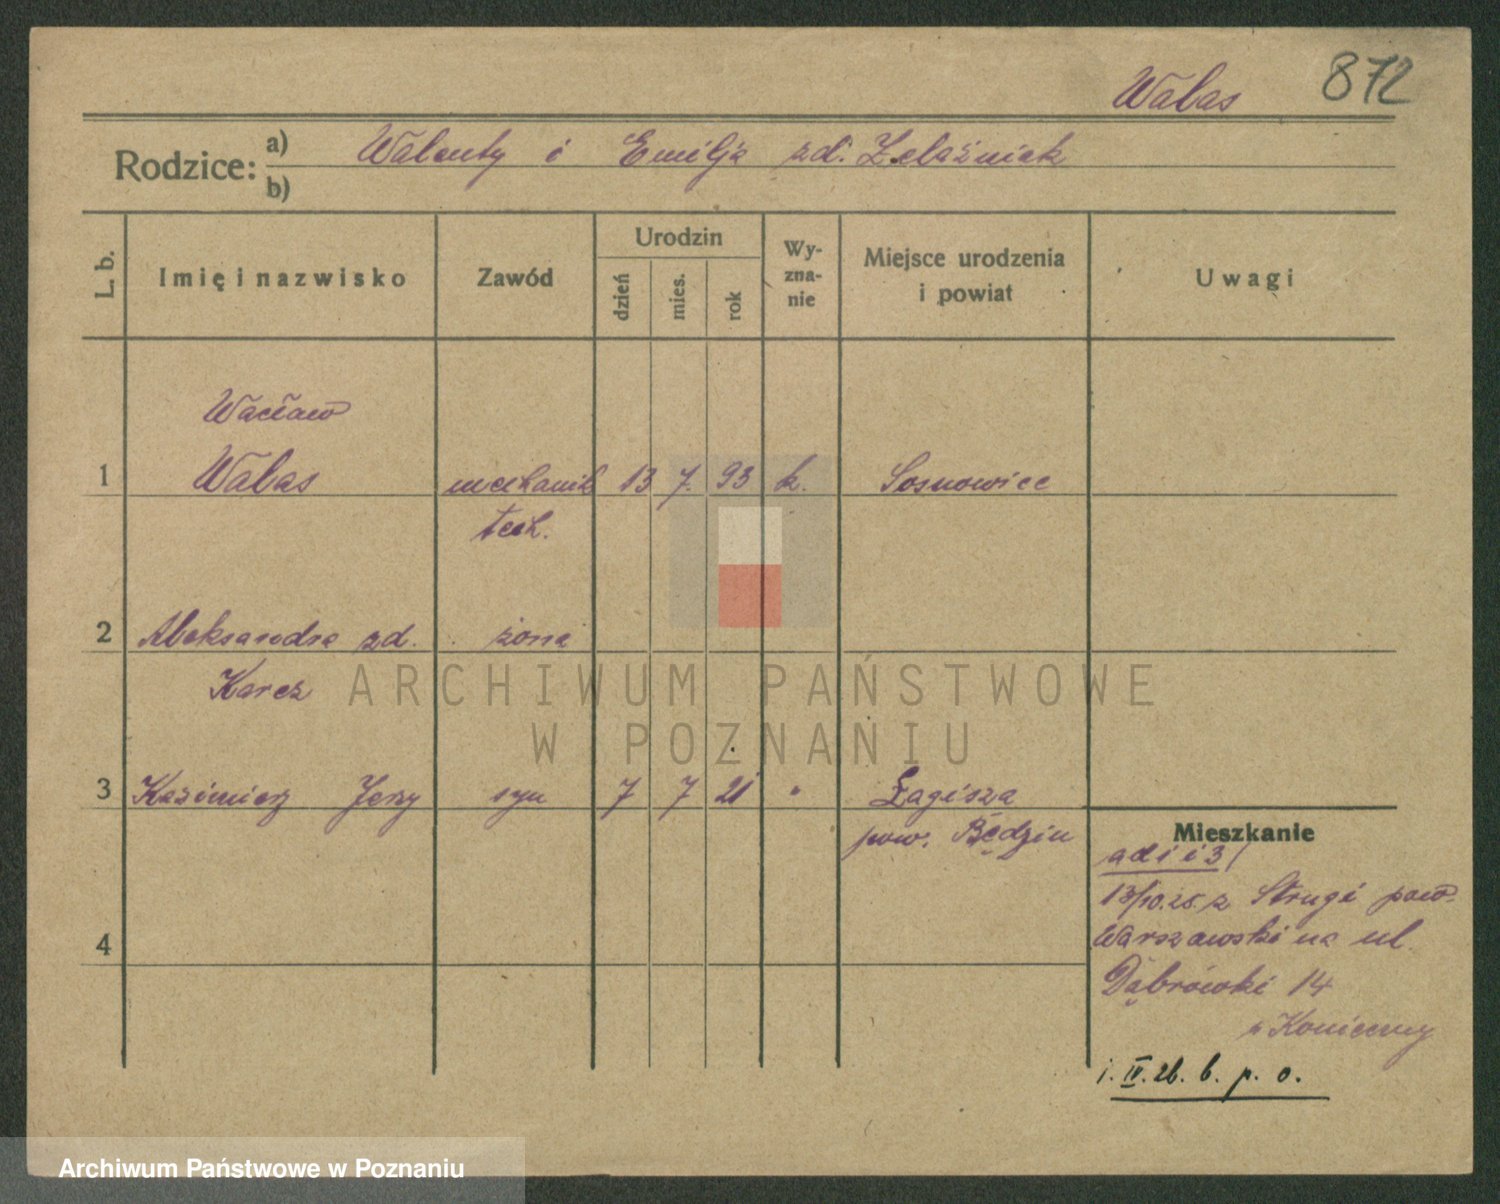 Wabas 872
Rodzice: a) Walenty i Emilja zd. Żelaźniak
b)
L. b. Imię i nazwisko Zawód Urodzin dzień mies. rok Wy-zna-nie Miejsce urodzenia i powiat Uwagi
Wacław
1 Wabas mechanik 13 7. 93 k. Sosnowice
tech.
2 Aleksandra zd. żona
Karcz
3 Kazimierz Jerzy syn 7 7 21 " Łagisza
pow. Będzin
Mieszkanie
ad 1 i 3/
13/10.25. z Strugi pow.
Warszawski na ul.
4
Dąbrówki 14
Konieczny
1. IV. 26. b. p. o.
ARCHIWUM PAŃSTWOWE
W POZNANIU
Archiwum Państwowe w Poznaniu